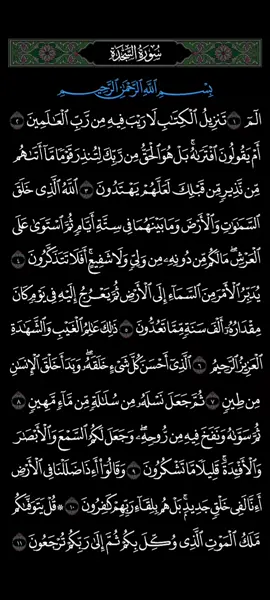 سُورَةُ السَّجْدَةِ
بِسْمِ اللَّهِ الرَّحْمَٰنِ الرَّحِيمِ
الٓمٓ ١ تَنزِيلُ الْكِتَابِ لَا رَيْبَ فِيهِ مِن رَّبِّ الْعَالَمِينَ ٢
أَمْ يَقُولُونَ افْتَرَاهُ ۚ بَلْ هُوَ الْحَقُّ مِن رَّبِّكَ لِتُنذِرَ قَوْمًا مَّا أَتَاهُم
مِّن نَّذِيرٍ مِّن قَبْلِكَ لَعَلَّهُمْ يَهْتَدُونَ ٣ اللَّهُ الَّذِي خَلَقَ
السَّمَاوَاتِ وَالْأَرْضَ وَمَا بَيْنَهُمَا فِي سِتَّةِ أَيَّامٍ ثُمَّ اسْتَوَىٰ عَلَى
الْعَرْشِ ۖ مَا لَكُم مِّن دُونِهِ مِن وَلِيٍّ وَلَا شَفِيعٍ ۚ أَفَلَا تَتَذَكَّرُونَ ٤
يُدَبِّرُ الْأَمْرَ مِنَ السَّمَاءِ إِلَى الْأَرْضِ ثُمَّ يَعْرُجُ إِلَيْهِ فِي يَوْمٍ كَانَ
مِقْدَارُهُ أَلْفَ سَنَةٍ مِّمَّا تَعُدُّونَ ٥ ذَٰلِكَ عَالِمُ الْغَيْبِ وَالشَّهَادَةِ
الْعَزِيزُ الرَّحِيمُ ٦ الَّذِي أَحْسَنَ كُلَّ شَيْءٍ خَلَقَهُ ۖ وَبَدَأَ خَلْقَ الْإِنسَانِ
مِن طِينٍ ٧ ثُمَّ جَعَلَ نَسْلَهُ مِن سُلَالَةٍ مِّن مَّاءٍ مَّهِينٍ ٨
ثُمَّ سَوَّاهُ وَنَفَخَ فِيهِ مِن رُّوحِهِ ۖ وَجَعَلَ لَكُمُ السَّمْعَ وَالْأَبْصَارَ
وَالْأَفْئِدَةَ ۚ قَلِيلًا مَّا تَشْكُرُونَ ٩ وَقَالُوا أَءِذَا ضَلَلْنَا فِي الْأَرْضِ
أَءِنَّا لَفِي خَلْقٍ جَدِيدٍ ۚ بَلْ هُم بِلِقَاءِ رَبِّهِمْ كَافِرُونَ ١٠ ۞ قُلْ يَتَوَفَّاكُم
مَّلَكُ الْمَوْتِ الَّذِي وُكِّلَ بِكُمْ ثُمَّ إِلَىٰ رَبِّكُمْ تُرْجَعُونَ ١١